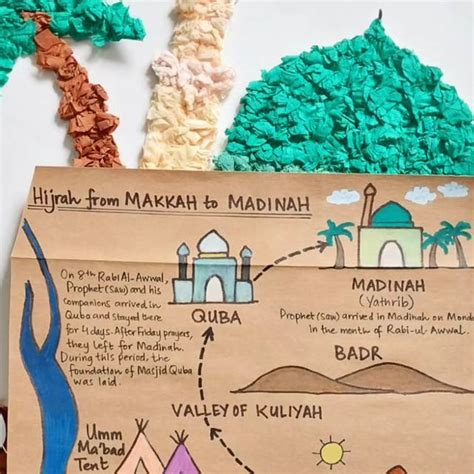 Hijrah from MAKKAH to MADINAH
On 8th Rabi Al-Awwal,
Prophet (saw) and his
companions arrived in
Quba and stayed there
for 4 days. After Friday prayers,
they left for Madinah.
During this period, the
foundation of Masjid Quba
was laid.
QUBA
MADINAH
(Yathrib)
Prophet (saw) arrived in Madinah on Mond
in the month of Rabi-ul-Awwal.
BADR
VALLEY OF KULIYAH
Umm
Ma'bad
Tent